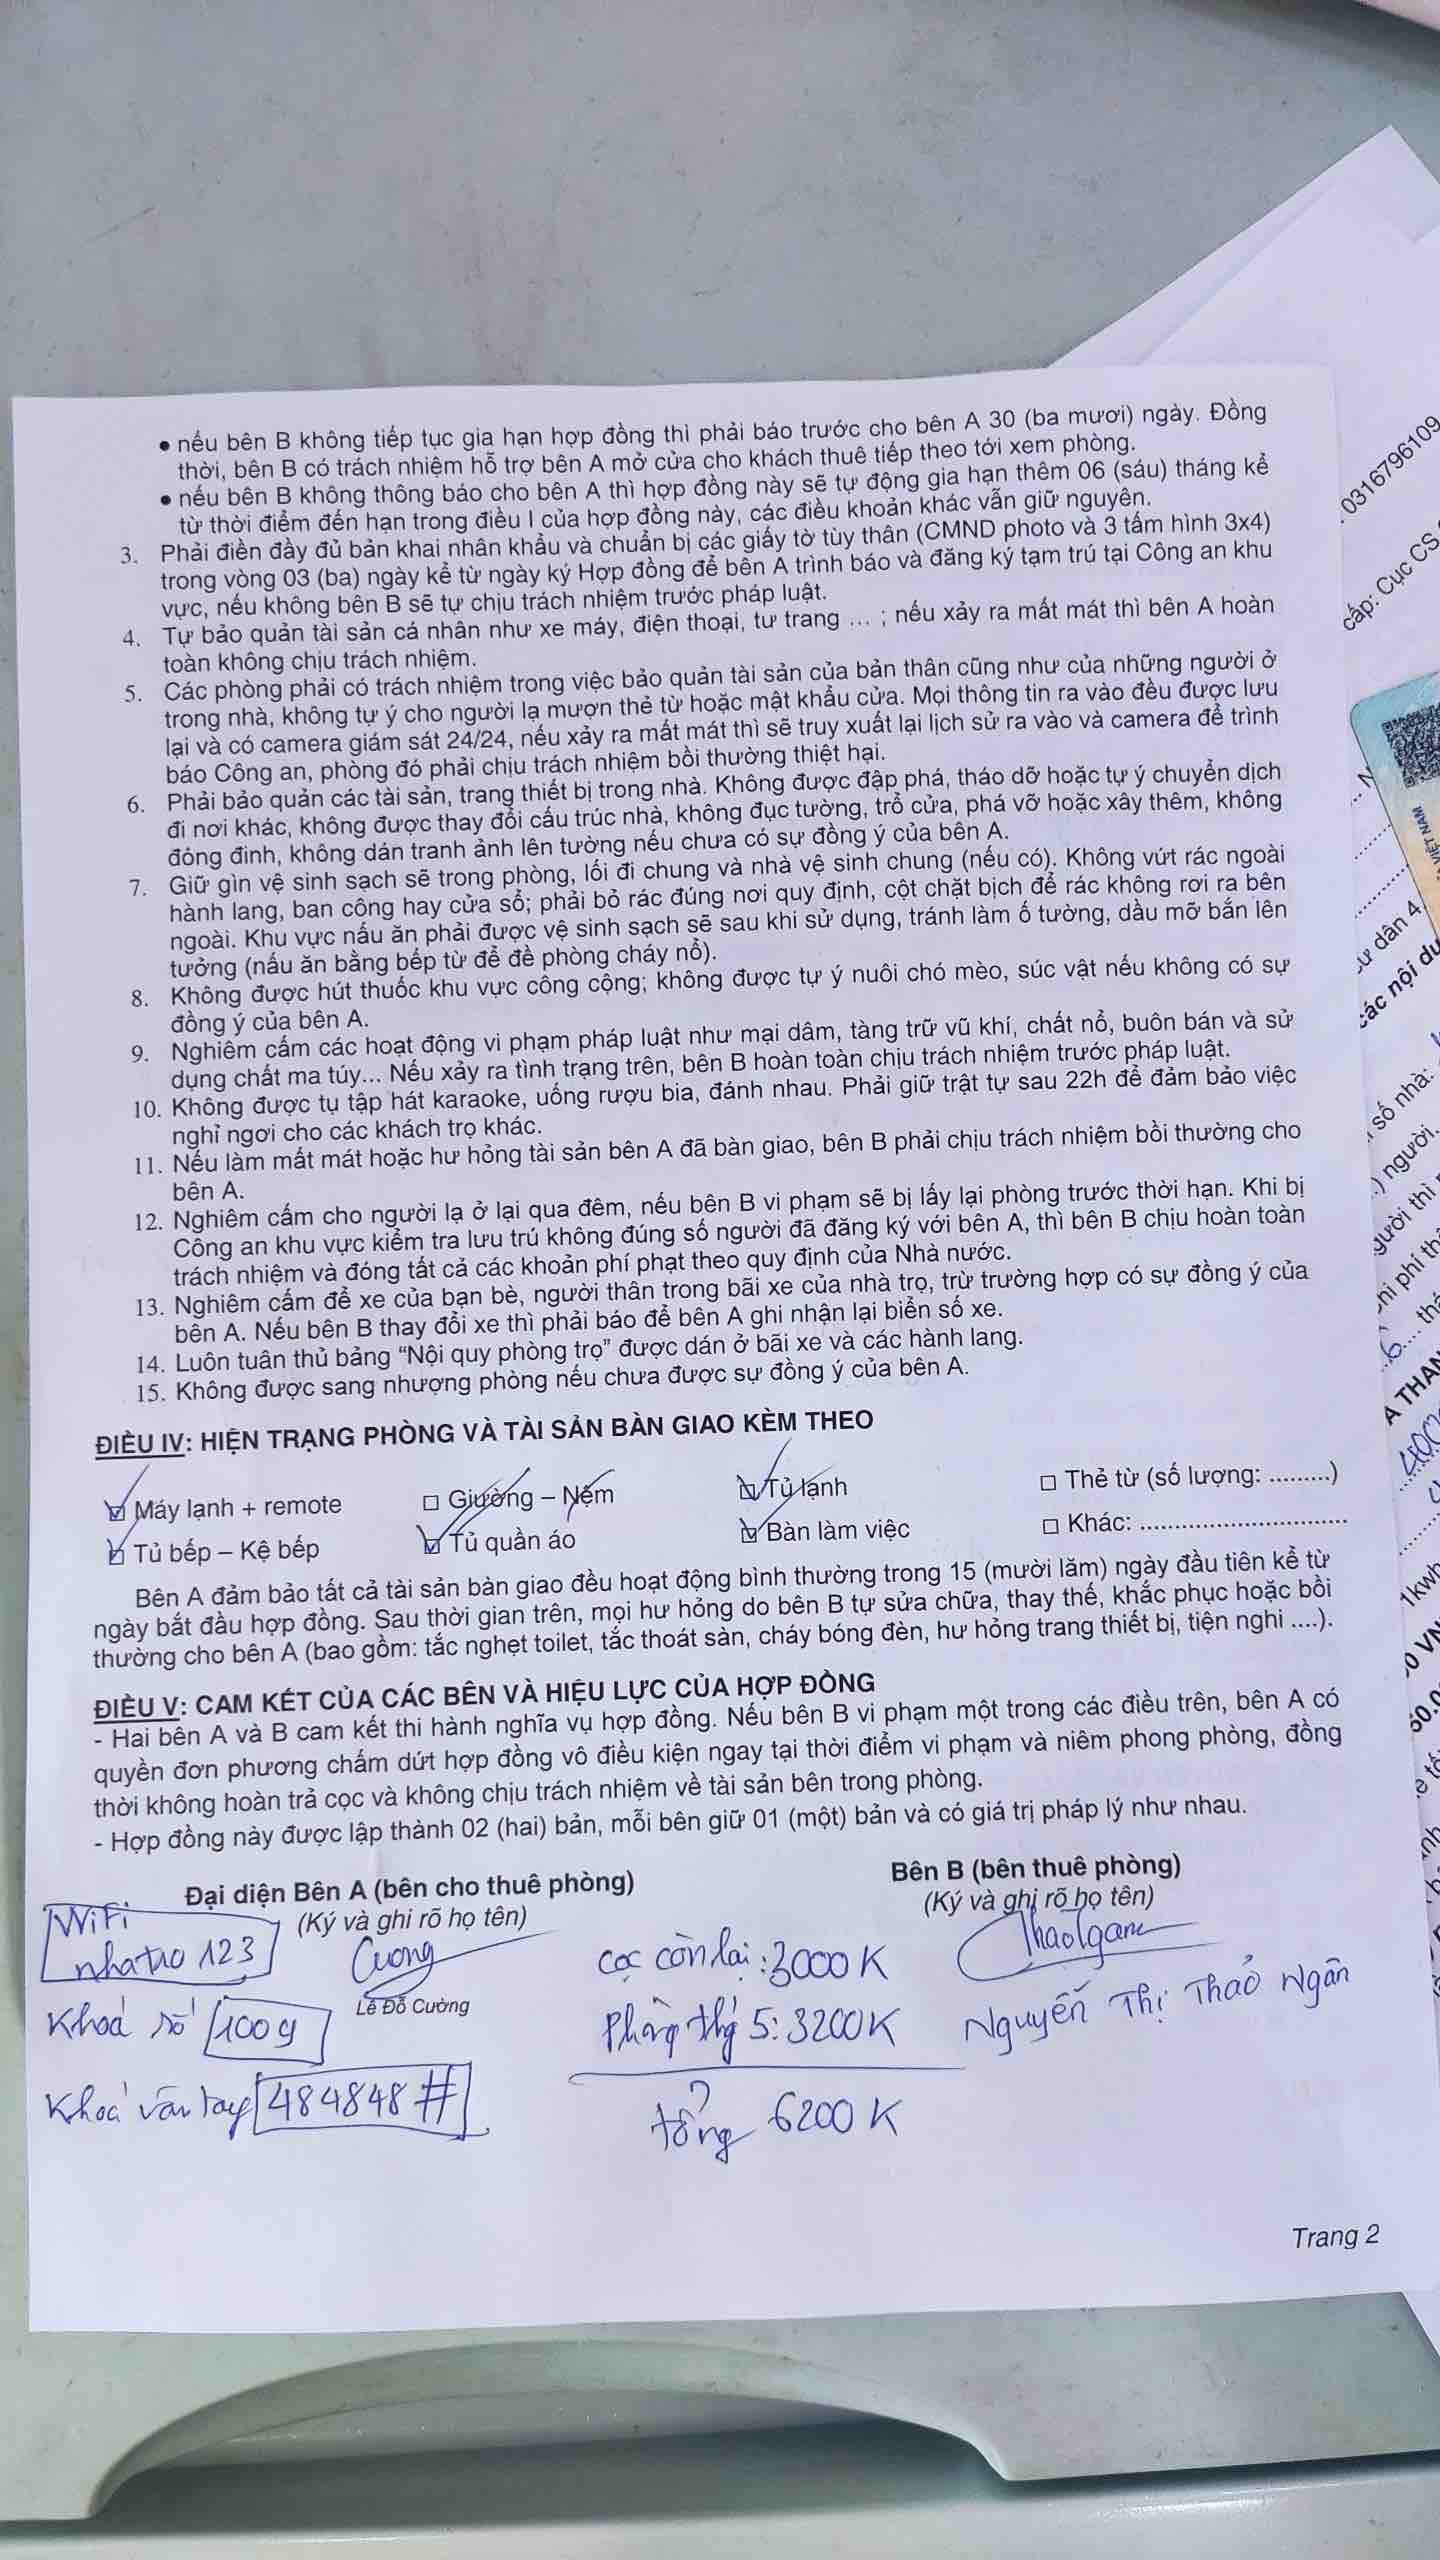 • nếu bên B không tiếp tục gia hạn hợp đồng thì phải báo trước cho bên A 30 (ba mươi) ngày. Đồng
thời, bên B có trách nhiệm hỗ trợ bên A mở cửa cho khách thuê tiếp theo tới xem phòng.
• nếu bên B không thông báo cho bên A thì hợp đồng này sẽ tự động gia hạn thêm 06 (sáu) tháng kể
từ thời điểm đến hạn trong điều I của hợp đồng này, các điều khoản khác vẫn giữ nguyên.
3. Phải điền đầy đủ bản khai nhân khẩu và chuẩn bị các giấy tờ tùy thân (CMND photo và 3 tấm hình 3x4)
trong vòng 03 (ba) ngày kể từ ngày ký Hợp đồng để bên A trình báo và đăng ký tạm trú tại Công an khu
vực, nếu không bên B sẽ tự chịu trách nhiệm trước pháp luật.
4. Tự bảo quản tài sản cá nhân như xe máy, điện thoại, tư trang ... ; nếu xảy ra mất mát thì bên A hoàn
toàn không chịu trách nhiệm.
5. Các phòng phải có trách nhiệm trong việc bảo quản tài sản của bản thân cũng như của những người ở
trong nhà, không tự ý cho người lạ mượn thẻ từ hoặc mật khẩu cửa. Mọi thông tin ra vào đều được lưu
lại và có camera giám sát 24/24, nếu xảy ra mất mát thì sẽ truy xuất lại lịch sử ra vào và camera để trình
báo Công an, phòng đó phải chịu trách nhiệm bồi thường thiệt hại.
6. Phải bảo quản các tài sản, trang thiết bị trong nhà. Không được đập phá, tháo dỡ hoặc tự ý chuyển dịch
đi nơi khác, không được thay đổi cấu trúc nhà, không đục tường, trổ cửa, phá vỡ hoặc xây thêm, không
đóng đinh, không dán tranh ảnh lên tường nếu chưa có sự đồng ý của bên A.
7. Giữ gìn vệ sinh sạch sẽ trong phòng, lối đi chung và nhà vệ sinh chung (nếu có). Không vứt rác ngoài
hành lang, ban công hay cửa sổ; phải bỏ rác đúng nơi quy định, cột chặt bịch để rác không rơi ra bên
ngoài. Khu vực nấu ăn phải được vệ sinh sạch sẽ sau khi sử dụng, tránh làm ố tường, dầu mỡ bắn lên
tưởng (nấu ăn bằng bếp từ để đề phòng cháy nổ).
8. Không được hút thuốc khu vực công cộng; không được tự ý nuôi chó mèo, súc vật nếu không có sự
đồng ý của bên A.
9. Nghiêm cấm các hoạt động vi phạm pháp luật như mại dâm, tàng trữ vũ khí, chất nổ, buôn bán và sử
dụng chất ma túy... Nếu xảy ra tình trạng trên, bên B hoàn toàn chịu trách nhiệm trước pháp luật.
10. Không được tụ tập hát karaoke, uống rượu bia, đánh nhau. Phải giữ trật tự sau 22h để đảm bảo việc
nghỉ ngơi cho các khách trọ khác.
11. Nếu làm mất mát hoặc hư hỏng tài sản bên A đã bàn giao, bên B phải chịu trách nhiệm bồi thường cho
bên A.
12. Nghiêm cấm cho người lạ ở lại qua đêm, nếu bên B vi phạm sẽ bị lấy lại phòng trước thời hạn. Khi bị
Công an khu vực kiểm tra lưu trú không đúng số người đã đăng ký với bên A, thì bên B chịu hoàn toàn
trách nhiệm và đóng tất cả các khoản phí phạt theo quy định của Nhà nước.
13. Nghiêm cấm để xe của bạn bè, người thân trong bãi xe của nhà trọ, trừ trường hợp có sự đồng ý của
bên A. Nếu bên B thay đổi xe thì phải báo để bên A ghi nhận lại biển số xe.
14. Luôn tuân thủ bảng “Nội quy phòng trọ” được dán ở bãi xe và các hành lang.
15. Không được sang nhượng phòng nếu chưa được sự đồng ý của bên A.
ĐIỀU IV: HIỆN TRẠNG PHÒNG VÀ TÀI SẢN BÀN GIAO KÈM THEO
☑ Máy lạnh + remote ☐ Giường – Nệm ☑ Tủ lạnh ☐ Thẻ từ (số lượng: .........)
☑ Tủ bếp – Kệ bếp ☑ Tủ quần áo ☑ Bàn làm việc ☐ Khác: ..............................
Bên A đảm bảo tất cả tài sản bàn giao đều hoạt động bình thường trong 15 (mười lăm) ngày đầu tiên kể từ
ngày bắt đầu hợp đồng. Sau thời gian trên, mọi hư hỏng do bên B tự sửa chữa, thay thế, khắc phục hoặc bồi
thường cho bên A (bao gồm: tắc nghẹt toilet, tắc thoát sàn, cháy bóng đèn, hư hỏng trang thiết bị, tiện nghi ....).
ĐIỀU V: CAM KẾT CỦA CÁC BÊN VÀ HIỆU LỰC CỦA HỢP ĐỒNG
- Hai bên A và B cam kết thi hành nghĩa vụ hợp đồng. Nếu bên B vi phạm một trong các điều trên, bên A có
quyền đơn phương chấm dứt hợp đồng vô điều kiện ngay tại thời điểm vi phạm và niêm phong phòng, đồng
thời không hoàn trả cọc và không chịu trách nhiệm về tài sản bên trong phòng.
- Hợp đồng này được lập thành 02 (hai) bản, mỗi bên giữ 01 (một) bản và có giá trị pháp lý như nhau.
Đại diện Bên A (bên cho thuê phòng) Bên B (bên thuê phòng)
(Ký và ghi rõ họ tên) (Ký và ghi rõ họ tên)
WiFi
nhatro 123
Cuong
Lê Đỗ Cường
Khoá số 100g
Khoá vân tay 484848#
cọc còn lại : 3000K
Phòng thg 5: 3200K
tổng 6200K
Nguyễn Thị Thảo Ngân
Trang 2
0316796109
cấp: Cục CS
VIỆT NAM
các nội du
số nhà:
) người.
gười thì
hi phí th
6... thá
A THAN
1kwh